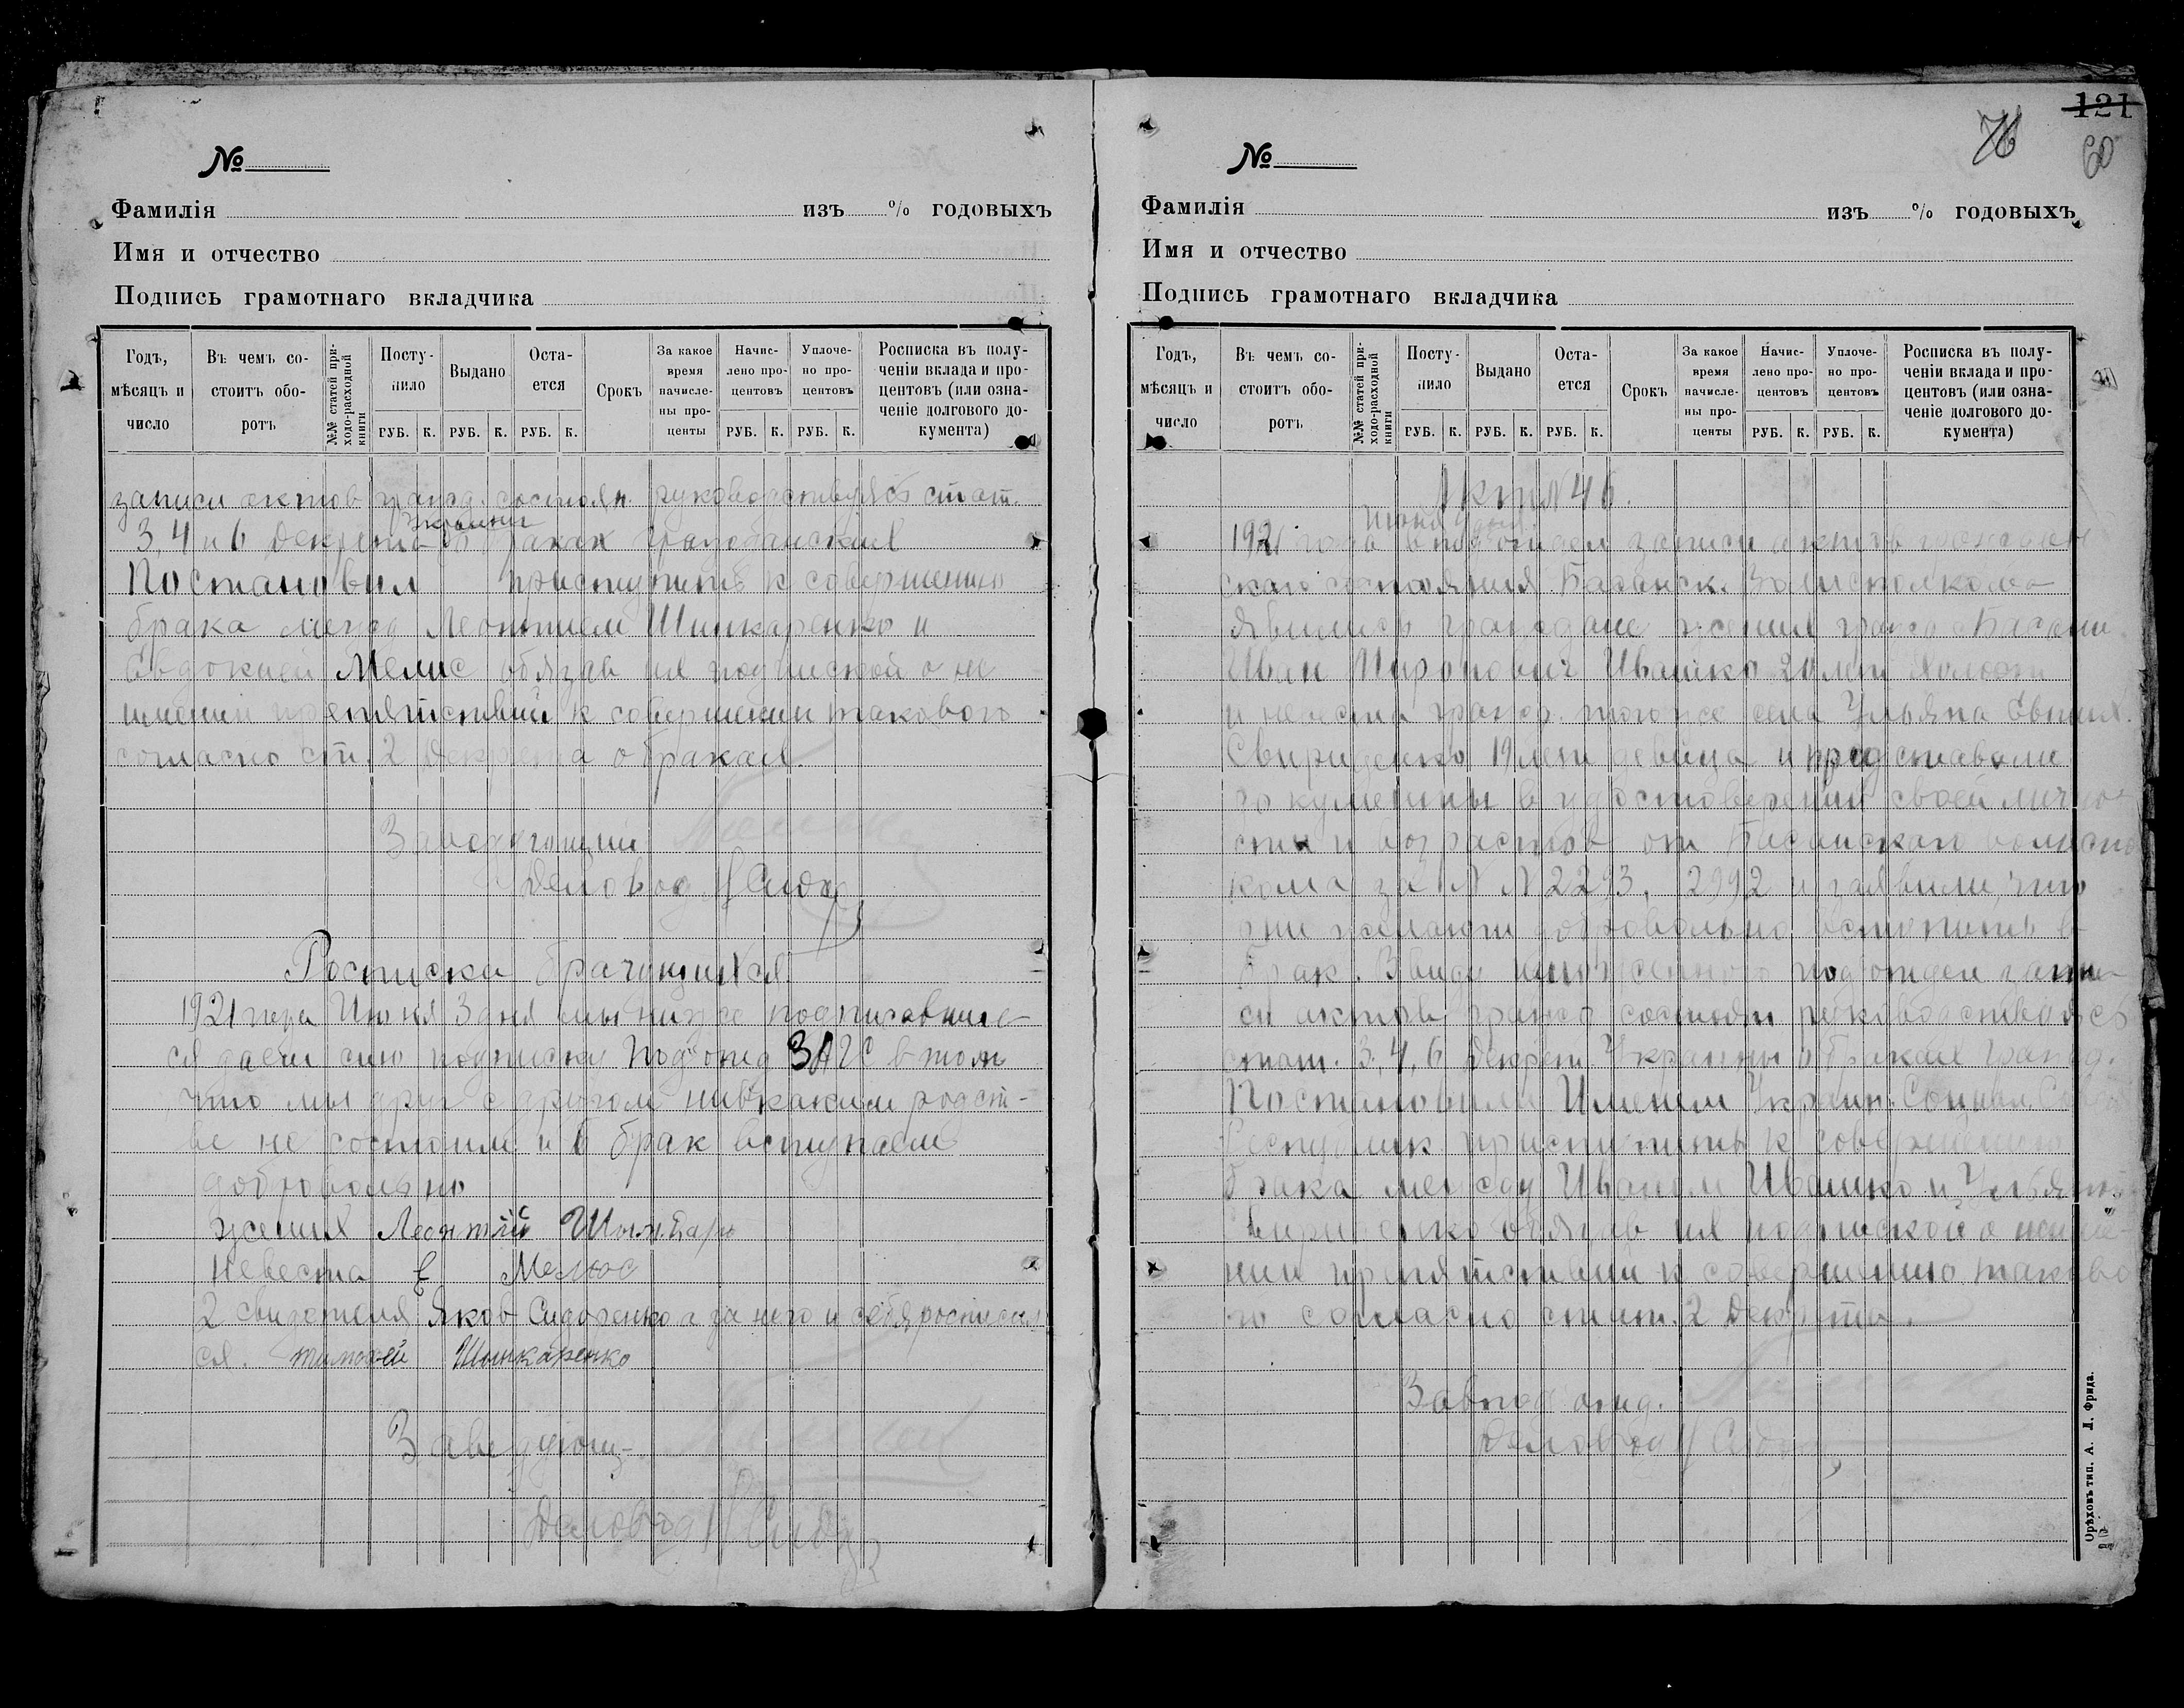 №
Фамилія изъ % годовыхъ
Имя и отчество
Подпись грамотнаго вкладчика
Годъ, мѣсяцъ и число
Въ чемъ состоитъ оборотъ
№№ статей приходо-расходной книги
Поступило
Выдано
Остается
Срокъ
За какое время начислены проценты
Начислено процентовъ
Уплочено процентовъ
Росписка въ полученіи вклада и процентовъ (или означеніе долгового документа)
РУБ. К. РУБ. К. РУБ. К. РУБ. К. РУБ. К.
записи актов гражд. состоян. руководствуясь стат.
Украины
3, 4 и 6 декрета о браках гражданских
Постановил приступить к совершению
брака межд Леонтием Шинкаренко и
Евдокией Мелис обязав их подпиской о не
имении препятствий к совершении такового
согласно ст. 2 Декрета о браках.
Заведующий
Деловод
Росписка брачующихся
1921 года Июня 3 дня мы ниже подписавшие-
ся даем сию подписку Подотд ЗАГС в том
что мы друг с другом ни в каком родст-
ве не состоим и в брак вступаем
добровольно
жених Леонтий
Невеста Е
2 свидетеля Яков Сидоренко а за него и себя росписал
ся. тимофей Шинкаренко
Заведующ-
Деловод
121
76
60
№
Фамилія изъ % годовыхъ
Имя и отчество
Подпись грамотнаго вкладчика
Годъ, мѣсяцъ и число
Въ чемъ состоитъ оборотъ
№№ статей приходо-расходной книги
Поступило
Выдано
Остается
Срокъ
За какое время начислены проценты
Начислено процентовъ
Уплочено процентовъ
Росписка въ полученіи вклада и процентовъ (или означеніе долгового документа)
РУБ. К. РУБ. К. РУБ. К. РУБ. К. РУБ. К.
Акт № 46.
июня дня
1921 года в подотдел записи актов граждан
скаго состояния Басанск. Волисполкома
явились граждане жених гражд с Басани
Иван Миронович Ивашко 20 лет Холост
и невеста гражд. того же села Ульяна Евтих.
Свириденко 19 лет девица и представили
документы в удостоверении своей лично
сти и возрастов от Басанскаго волиспо
кома за № № 2293, 2992 и заявили, что
они желают добровольно вступить в
брак. Ввиду подотдел запи-
си актов гражд состоян руководствуясь
стат. 3, 4, 6 Декрет. Украины о браках гражд.
Постановил Именем Украин. Социал. Со
Республик приступить к совершению
брака между Иваном Ивашко и Ульяной
Свириденко обязав их подпиской о неиме-
нии препятствий к совершению таково
го согласно стат. 2 Декрета.
Завподотд.
Деловод
Орѣховъ тип. А. Л. Фрида.